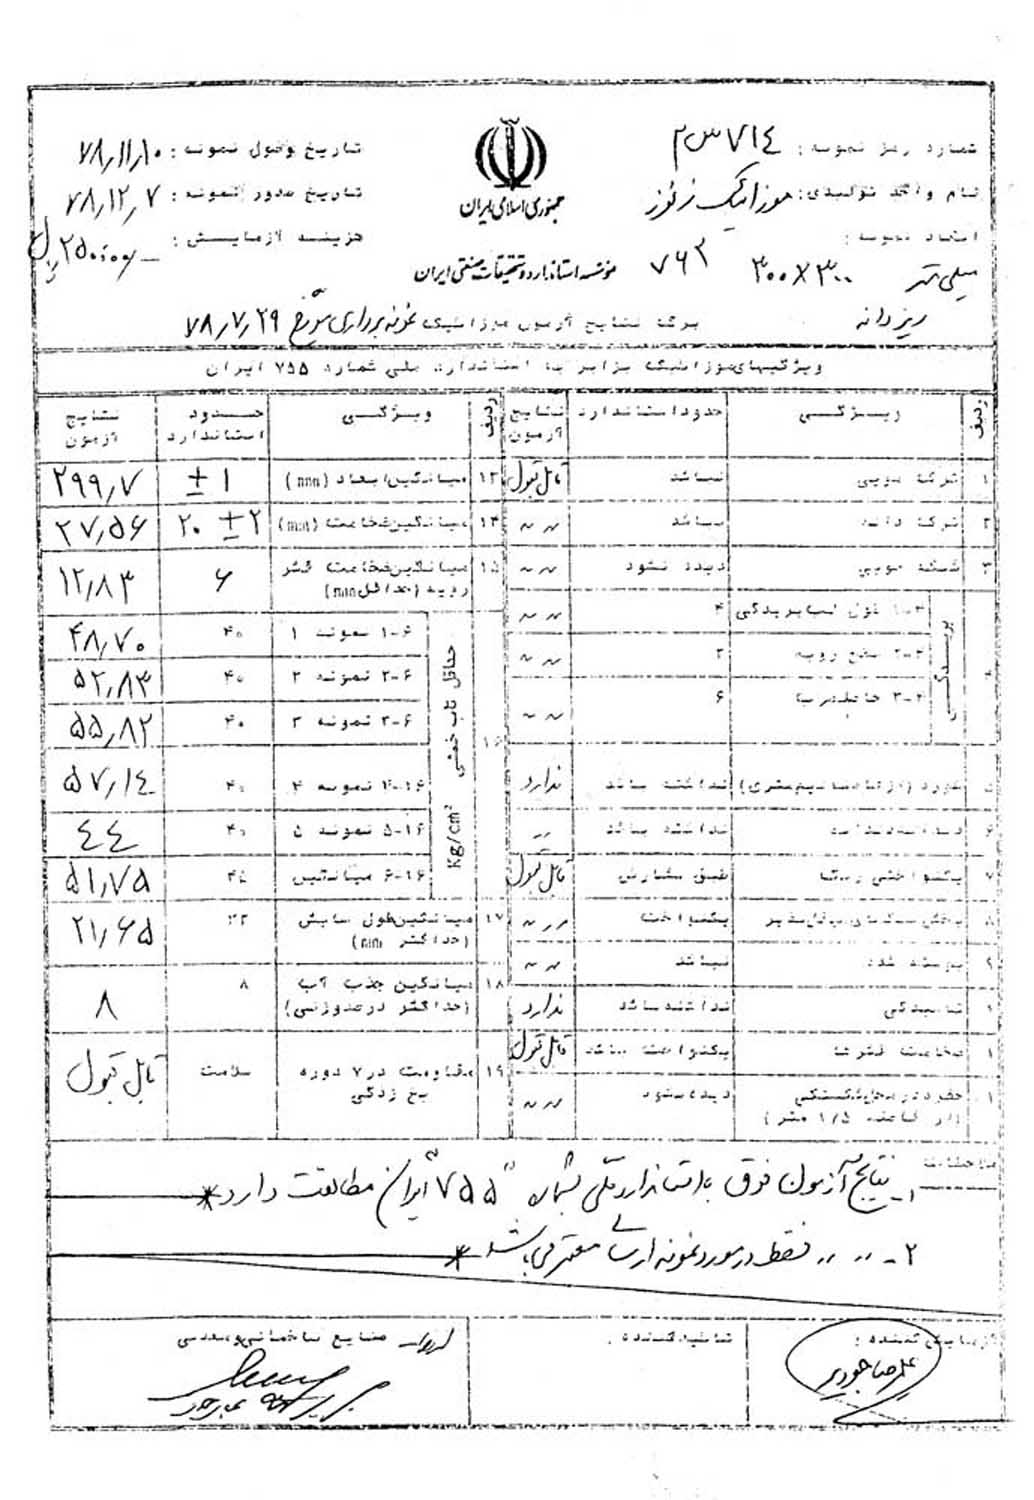 شماره رمز نمونه: ۷۱٤ س ۲
نام واحد تولیدی: موزائیک
ابعاد نمونه:
۳۰۰×۳۰۰ میلی متر
ریز دانه
۷۶۳
جمهوری اسلامی ایران
مؤسسه استاندارد و تحقیقات صنعتی ایران
تاریخ وصول نمونه: ۷۸,۱۱,۱۰
تاریخ صدور نمونه: ۷۸,۱۲,۷
هزینه آزمایش:
برگ نتایج آزمون موزائیک نمونه برداری مورخ ۷۸,۷,۲۹
ویژگیهای موزائیک برابر با استاندارد ملی شماره ۷۵۵ ایران
ردیف ویژگی حدود استاندارد نتایج آزمون
۱ ترک مویی نباشد قابل قبول
۲ نباشد " "
۳ مویی دیده نشود " "
۴ پریدگی
۴-۱ طول لب پریدگی ۴ " "
۴-۲ سطح رویه ۲ " "
۴-۳ ۶ " "
۵ نداشته باشد ندارد
۶ نداشته باشد "
۷ یکنواختی رنگ طبق سفارش قابل قبول
۸ یکنواخت " "
۹ پوسته شدن نباشد " "
نداشته باشد ندارد
ضخامت قشرها یکنواخت باشد قابل قبول
(از فاصله ۱/۵ متر) دیده نشود " "
ردیف ویژگی حدود استاندارد نتایج آزمون
۱۳ میانگین ابعاد (mm) ±۱ ۲۹۹,۷
۱۴ میانگین ضخامت (mm) ۲۰ ±۲ ۲۷,۵۶
۱۵ میانگین ضخامت قشر رویه (حداقل mm) ۶ ۱۲,۸۳
۱۶ حداقل تاب خمشی Kg/cm²
۱-۶ نمونه ۱ ۴۰ ۴۸,۷۰
۲-۶ نمونه ۲ ۴۰ ۵۲,۸۳
۳-۶ نمونه ۳ ۴۰ ۵۵,۸۲
۴-۱۶ نمونه ۴ ۴۰ ۵۷,۱٤
۵-۱۶ نمونه ۵ ۴۰ ٤٤
۶-۱۶ میانگین ۴۵ ۵۱,۷۵
۱۷ میانگین طول سایش (حداکثر mm) ۲۱,۶۵
۱۸ میانگین جذب آب (حداکثر درصد وزنی) ۸ ۸
۱۹ مقاومت در ۷ دوره یخ زدگی سلامت قابل قبول
ملاحظات
۱- نتایج آزمون فوق با استاندارد ملی شماره "۷۵۵" ایران مطابقت دارد
۲- " " " فقط در مورد نمونه ارسالی معتبر می باشد
آزمایش کننده:
علیرضا
تائید کننده:
صنایع ساختمانی و معدنی